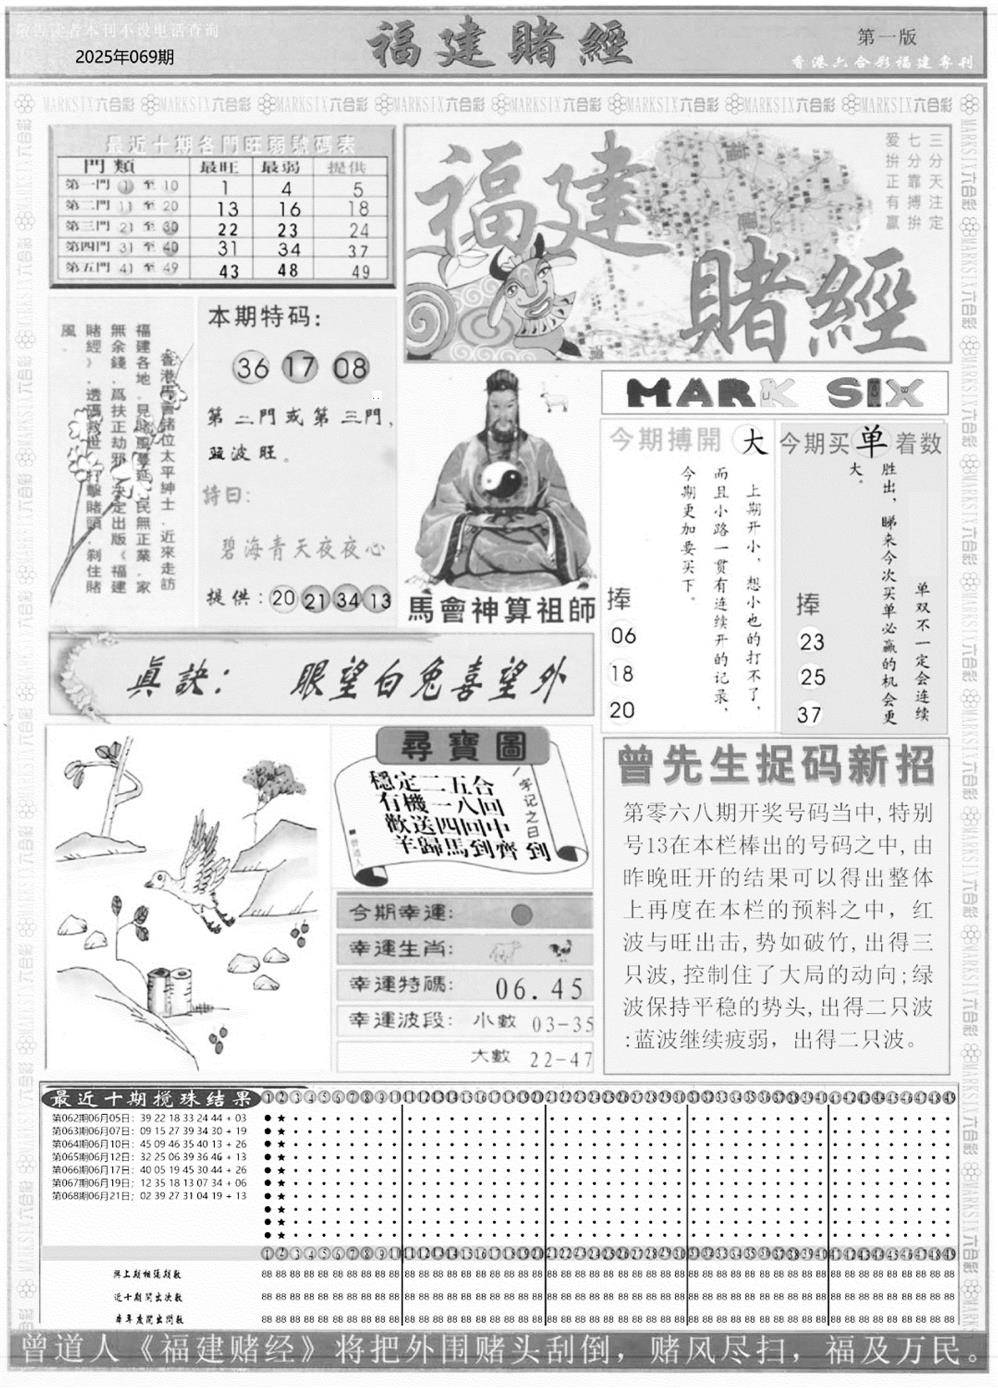 敬告读者本刊不设电话查询
2025年069期
福建赌經
第一版
香港六合彩福建專刊
MARKSIX六合彩 MARKSIX六合彩 MARKSIX六合彩 MARKSIX六合彩 MARKSIX六合彩 MARKSIX六合彩 MARKSIX六合彩 MARKSIX六合彩
最近十期各門旺弱號碼表
門類 最旺 最弱 提供
第一門 1 至 10 1 4 5
第二門 11 至 20 13 16 18
第三門 21 至 30 22 23 24
第四門 31 至 40 31 34 37
第五門 41 至 49 43 48 49
福建
賭經
三分天注定
七分靠搏拚
爱拚正有赢
香港馬會諸位太平紳士．近來走訪
福建各地．見賭風蔓延．民無正業．家
無余錢．爲扶正劫邪．決定出版《福建
賭經》．透碼救世．打擊賭頭．刹住賭
風．
本期特码：
36 17 08
第二門或第三門，
蓝波旺。
詩曰：
碧海青天夜夜心
提供：20 21 34 13
馬會神算祖師
MARK SIX
今期搏開 大
上期开小，想小也的打不了，
而且小路一贯有连续开的记录，
今期更加要买下。
捧
06
18
20
今期买 单 着数
单双不一定会连续
胜出，睇来今次买单必赢的机会更
大。
捧
23
25
37
眞訣： 眼望白兔喜望外
尋寶圖
穩定二五合
有機一八回
歡送四回中
羊歸馬到齊
一字记之曰到
曾道人
今期幸運：
幸運生肖：
幸運特碼： 06.45
幸運波段： 小數 03-35
大數 22-47
曾先生捉码新招
第零六八期开奖号码当中,特别
号13在本栏棒出的号码之中,由
昨晚旺开的结果可以得出整体
上再度在本栏的预料之中，红
波与旺出击,势如破竹,出得三
只波,控制住了大局的动向;绿
波保持平稳的势头,出得二只波
:蓝波继续疲弱，出得二只波。
最近十期搅珠结果
第062期06月05日：39 22 18 33 24 44 + 03
第063期06月07日：09 15 27 39 34 30 + 19
第064期06月10日：45 09 46 35 40 13 + 26
第065期06月12日：32 25 06 39 36 46 + 13
第066期06月17日：40 05 19 45 30 44 + 26
第067期06月19日：12 35 18 13 07 34 + 06
第068期06月21日：02 39 27 31 04 19 + 13
與上期相隔期数
近十期開出次數
本年度開出期數
曾道人《福建赌经》将把外围赌头刮倒，赌风尽扫，福及万民。